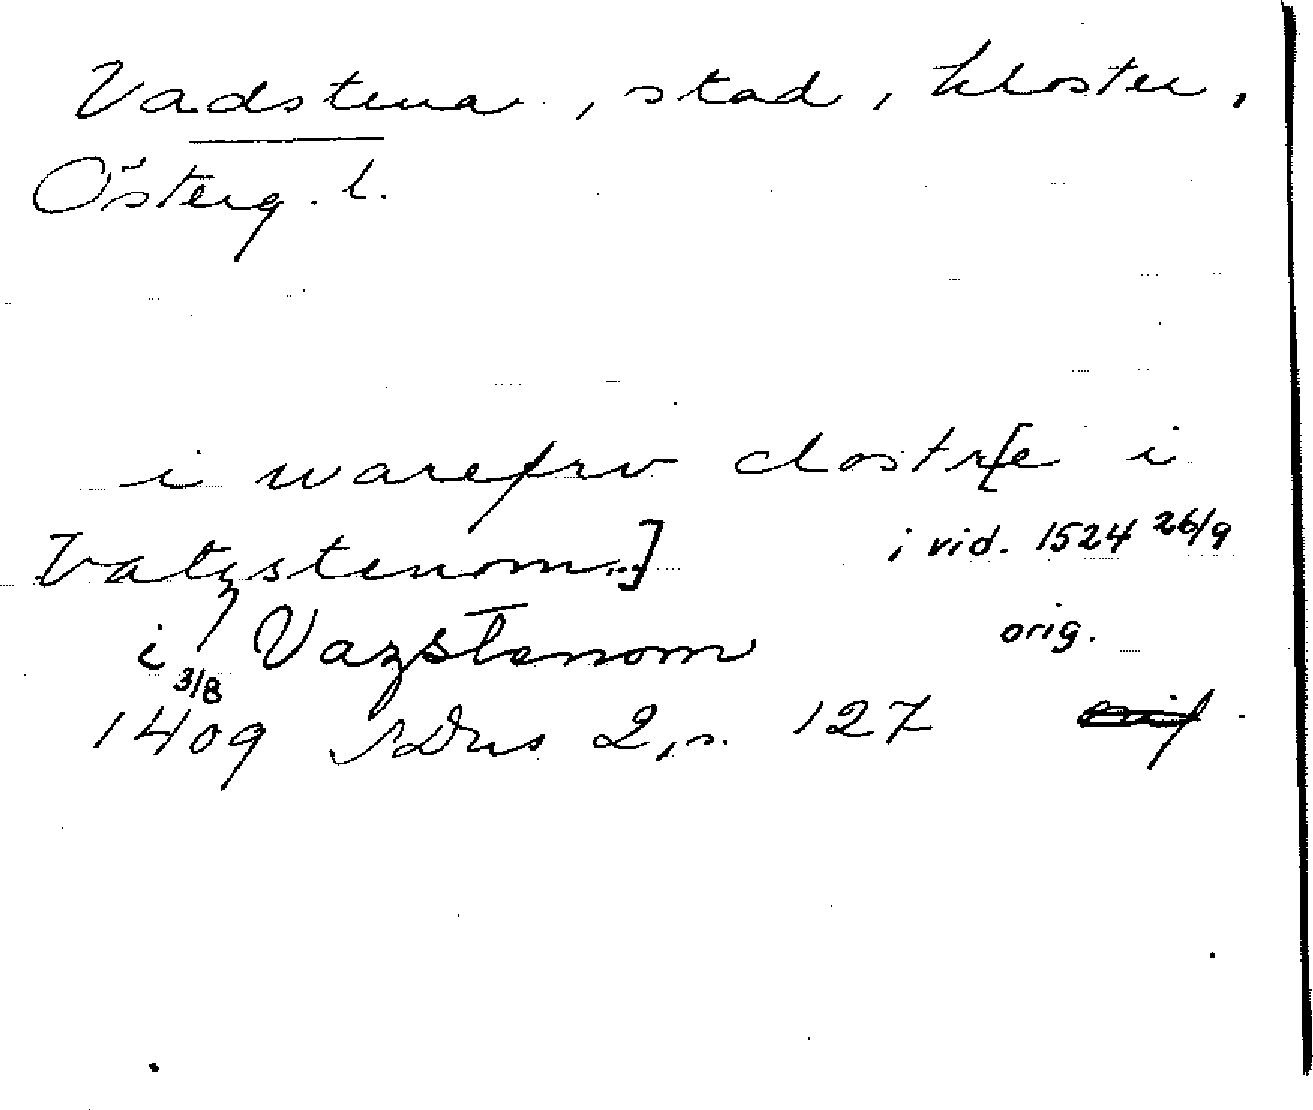 Vadstena, stad, kloster,
Österg. l.
i warefrv clostr[e i
Vatzstenom..] i vid. 1524 26/9
i Vazstenom orig.
3/8
1409 SDns 2, s. 127